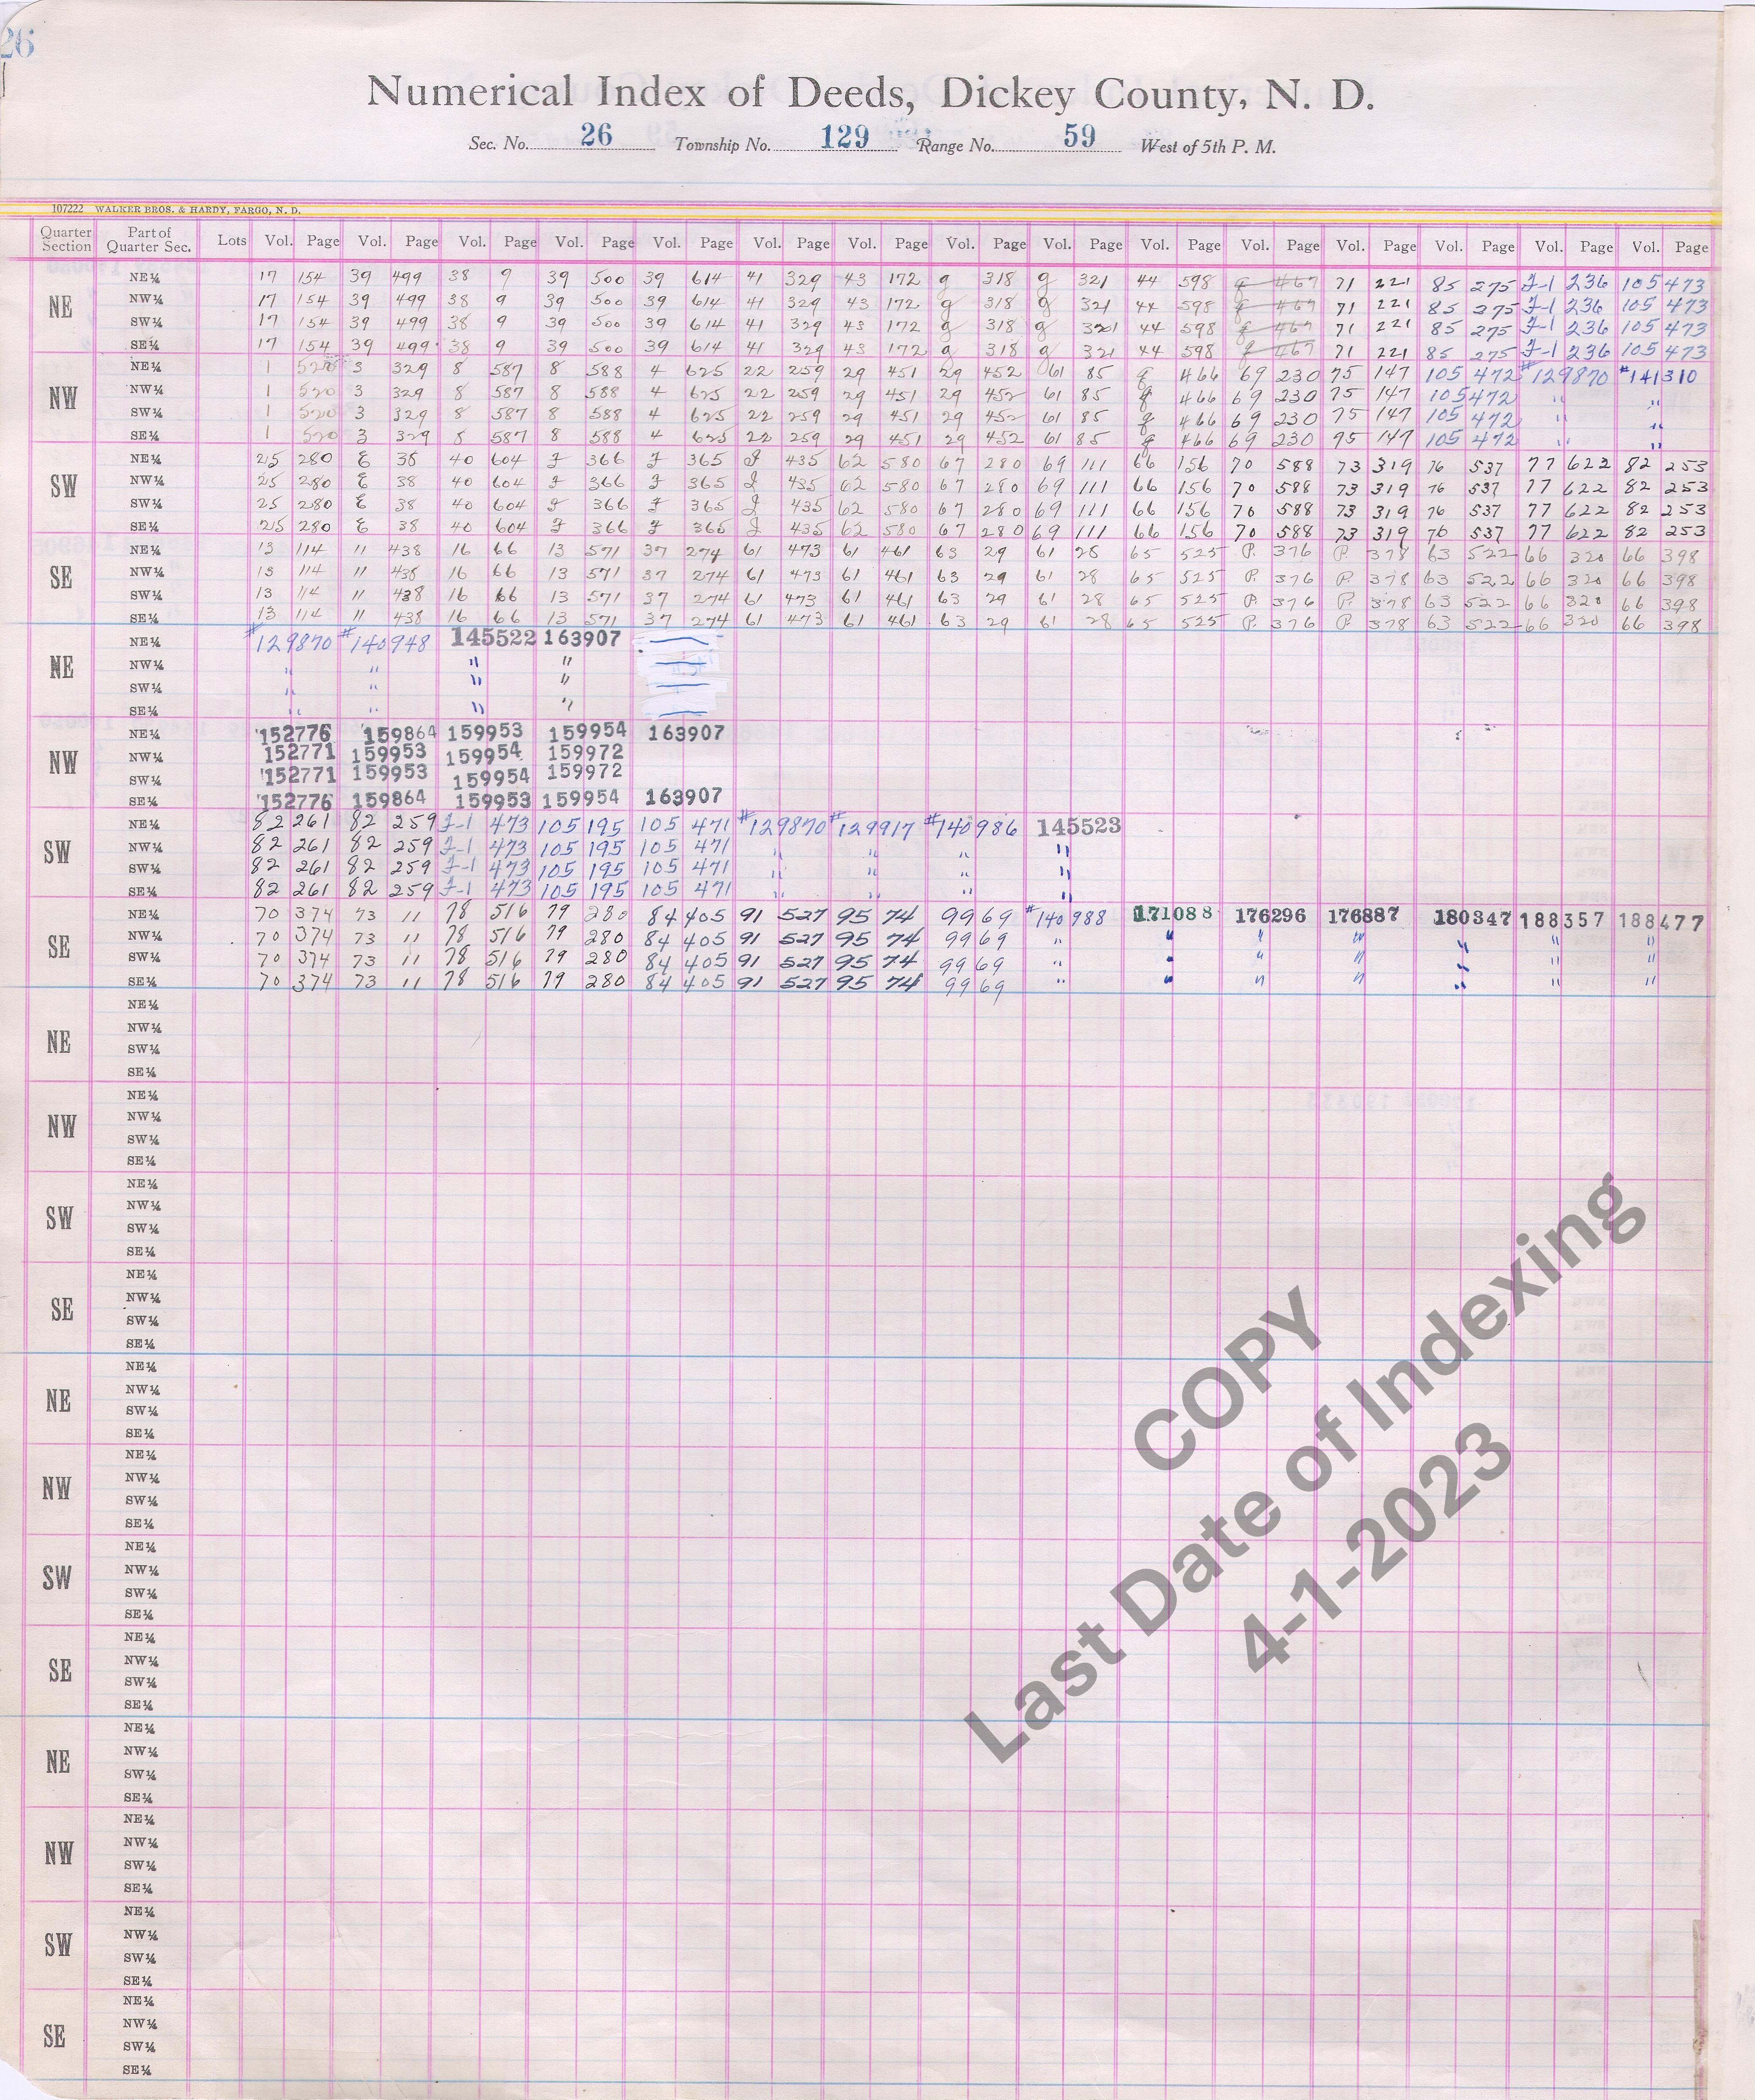 26
Numerical Index of Deeds, Dickey County, N. D.
Sec. No. 26 Township No. 129 Range No. 59 West of 5th P. M.
107222 WALKER BROS. & HARDY, FARGO, N. D.
Quarter Section Part of Quarter Sec. Lots Vol. Page Vol. Page Vol. Page Vol. Page Vol. Page Vol. Page Vol. Page Vol. Page Vol. Page Vol. Page Vol. Page Vol. Page Vol. Page Vol. Page Vol. Page
NE
NE¼ 17 154 39 499 38 9 39 500 39 614 41 329 43 172 g 318 g 321 44 598 g 467 71 221 85 275 J-1 236 105 473
NW¼ 17 154 39 499 38 9 39 500 39 614 41 329 43 172 g 318 g 321 44 598 g 467 71 221 85 275 J-1 236 105 473
SW¼ 17 154 39 499 38 9 39 500 39 614 41 329 43 172 g 318 g 321 44 598 g 467 71 221 85 275 J-1 236 105 473
SE¼ 17 154 39 499 38 9 39 500 39 614 41 329 43 172 g 318 g 321 44 598 g 467 71 221 85 275 J-1 236 105 473
NW
NE¼ 1 520 3 329 8 587 8 588 4 625 22 259 29 451 29 452 61 85 g 466 69 230 75 147 105 472 #129870 #141310
NW¼ 1 520 3 329 8 587 8 588 4 625 22 259 29 451 29 452 61 85 g 466 69 230 75 147 105 472 " "
SW¼ 1 520 3 329 8 587 8 588 4 625 22 259 29 451 29 452 61 85 g 466 69 230 75 147 105 472 " "
SE¼ 1 520 3 329 8 587 8 588 4 625 22 259 29 451 29 452 61 85 g 466 69 230 75 147 105 472 " "
SW
NE¼ 25 280 E 38 40 604 J 366 J 365 J 435 62 580 67 280 69 111 66 156 70 588 73 319 76 537 77 622 82 253
NW¼ 25 280 E 38 40 604 J 366 J 365 J 435 62 580 67 280 69 111 66 156 70 588 73 319 76 537 77 622 82 253
SW¼ 25 280 E 38 40 604 J 366 J 365 J 435 62 580 67 280 69 111 66 156 70 588 73 319 76 537 77 622 82 253
SE¼ 25 280 E 38 40 604 J 366 J 365 J 435 62 580 67 280 69 111 66 156 70 588 73 319 76 537 77 622 82 253
SE
NE¼ 13 114 11 438 16 66 13 571 37 274 61 473 61 461 63 29 61 28 65 525 P. 376 P. 378 63 522 66 320 66 398
NW¼ 13 114 11 438 16 66 13 571 37 274 61 473 61 461 63 29 61 28 65 525 P. 376 P. 378 63 522 66 320 66 398
SW¼ 13 114 11 438 16 66 13 571 37 274 61 473 61 461 63 29 61 28 65 525 P. 376 P. 378 63 522 66 320 66 398
SE¼ 13 114 11 438 16 66 13 571 37 274 61 473 61 461 63 29 61 28 65 525 P. 376 P. 378 63 522 66 320 66 398
NE
NE¼ #129870 #140948 145522 163907
NW¼ " " " "
SW¼ " " " "
SE¼ " " " "
NW
NE¼ 152776 159864 159953 159954 163907
NW¼ 152771 159953 159954 159972
SW¼ 152771 159953 159954 159972
SE¼ 152776 159864 159953 159954 163907
SW
NE¼ 82 261 82 259 J-1 473 105 195 105 471 #129870 #129917 #140986 145523
NW¼ 82 261 82 259 J-1 473 105 195 105 471 " " " "
SW¼ 82 261 82 259 J-1 473 105 195 105 471 " " " "
SE¼ 82 261 82 259 J-1 473 105 195 105 471 " " " "
SE
NE¼ 70 374 73 11 78 516 79 280 84 405 91 527 95 74 99 69 #140988 171088 176296 176887 180347 188357 188477
NW¼ 70 374 73 11 78 516 79 280 84 405 91 527 95 74 99 69 " " " " " " "
SW¼ 70 374 73 11 78 516 79 280 84 405 91 527 95 74 99 69 " " " " " " "
SE¼ 70 374 73 11 78 516 79 280 84 405 91 527 95 74 99 69 " " " " " " "
NE
NE¼
NW¼
SW¼
SE¼
NW
NE¼
NW¼
SW¼
SE¼
SW
NE¼
NW¼
SW¼
SE¼
SE
NE¼
NW¼
SW¼
SE¼
NE
NE¼
NW¼
SW¼
SE¼
NW
NE¼
NW¼
SW¼
SE¼
SW
NE¼
NW¼
SW¼
SE¼
SE
NE¼
NW¼
SW¼
SE¼
NE
NE¼
NW¼
SW¼
SE¼
NW
NE¼
NW¼
SW¼
SE¼
SW
NE¼
NW¼
SW¼
SE¼
SE
NE¼
NW¼
SW¼
SE¼
COPY
Last Date of Indexing
4-1-2023